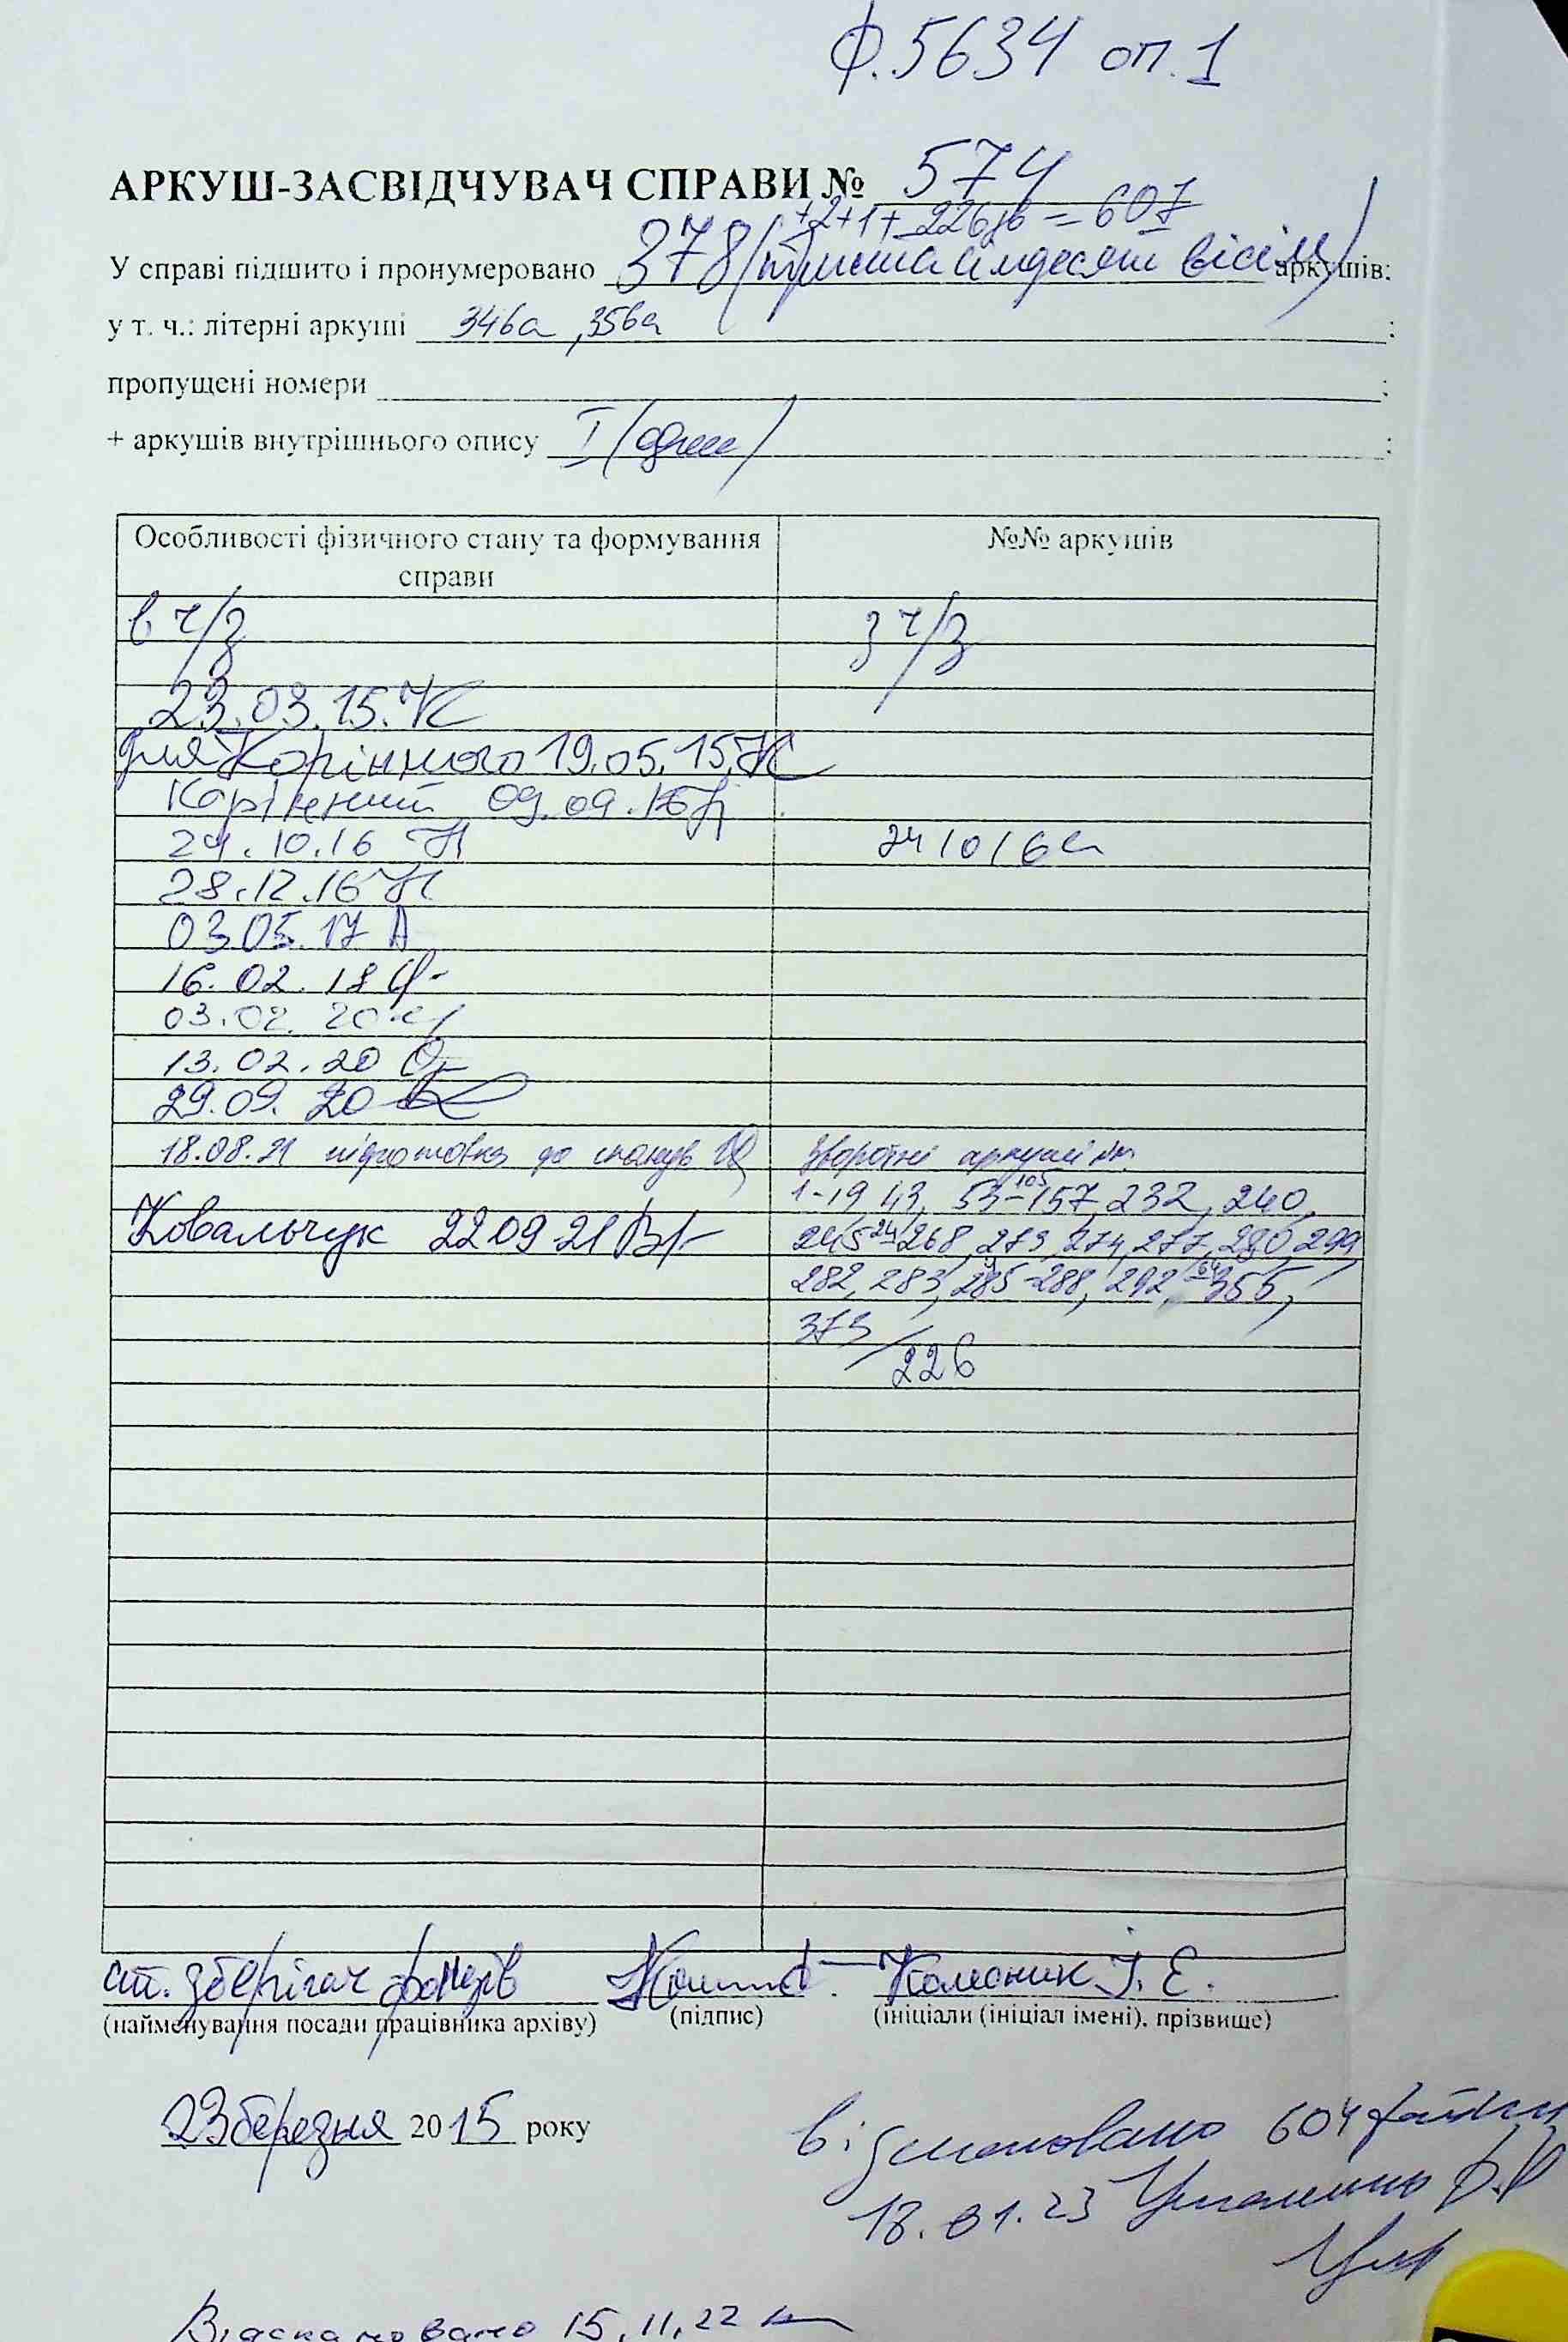 Ф.5634 оп.1
АРКУШ-ЗАСВІДЧУВАЧ СПРАВИ № 574
+2+1+226зв = 607
У справі підшито і пронумеровано 378 (триста сімдесят вісім) аркушів:
у т. ч.: літерні аркуші 346а, 356а ;
пропущені номери ;
+ аркушів внутрішнього опису I (один) ;
Особливості фізичного стану та формування справи
№№ аркушів
в ч/з
з ч/з
23.03.15.
для Корінного 19.05.15.
Корінний 09.09.16
24.10.16
241016
28.12.16
03.05.17
16.02.18
03.02.20
13.02.20
29.09.20
18.08.21 підготовка до сканув
Зворотні аркуші
105
1-19, 43, 53-157, 232, 240,
Ковальчук 22 09 21
24
245-268, 273, 274, 277, 280, 299
4 64
282, 283, 285-288, 292, -355,
373
226
ст. зберігач фондів
Колесник І. Е.
(найменування посади працівника архіву)
(підпис)
(ініціали (ініціал імені), прізвище)
23 березня 2015 року
Відскановано 604 файли
18.01.23
Відскановано 15.11.22